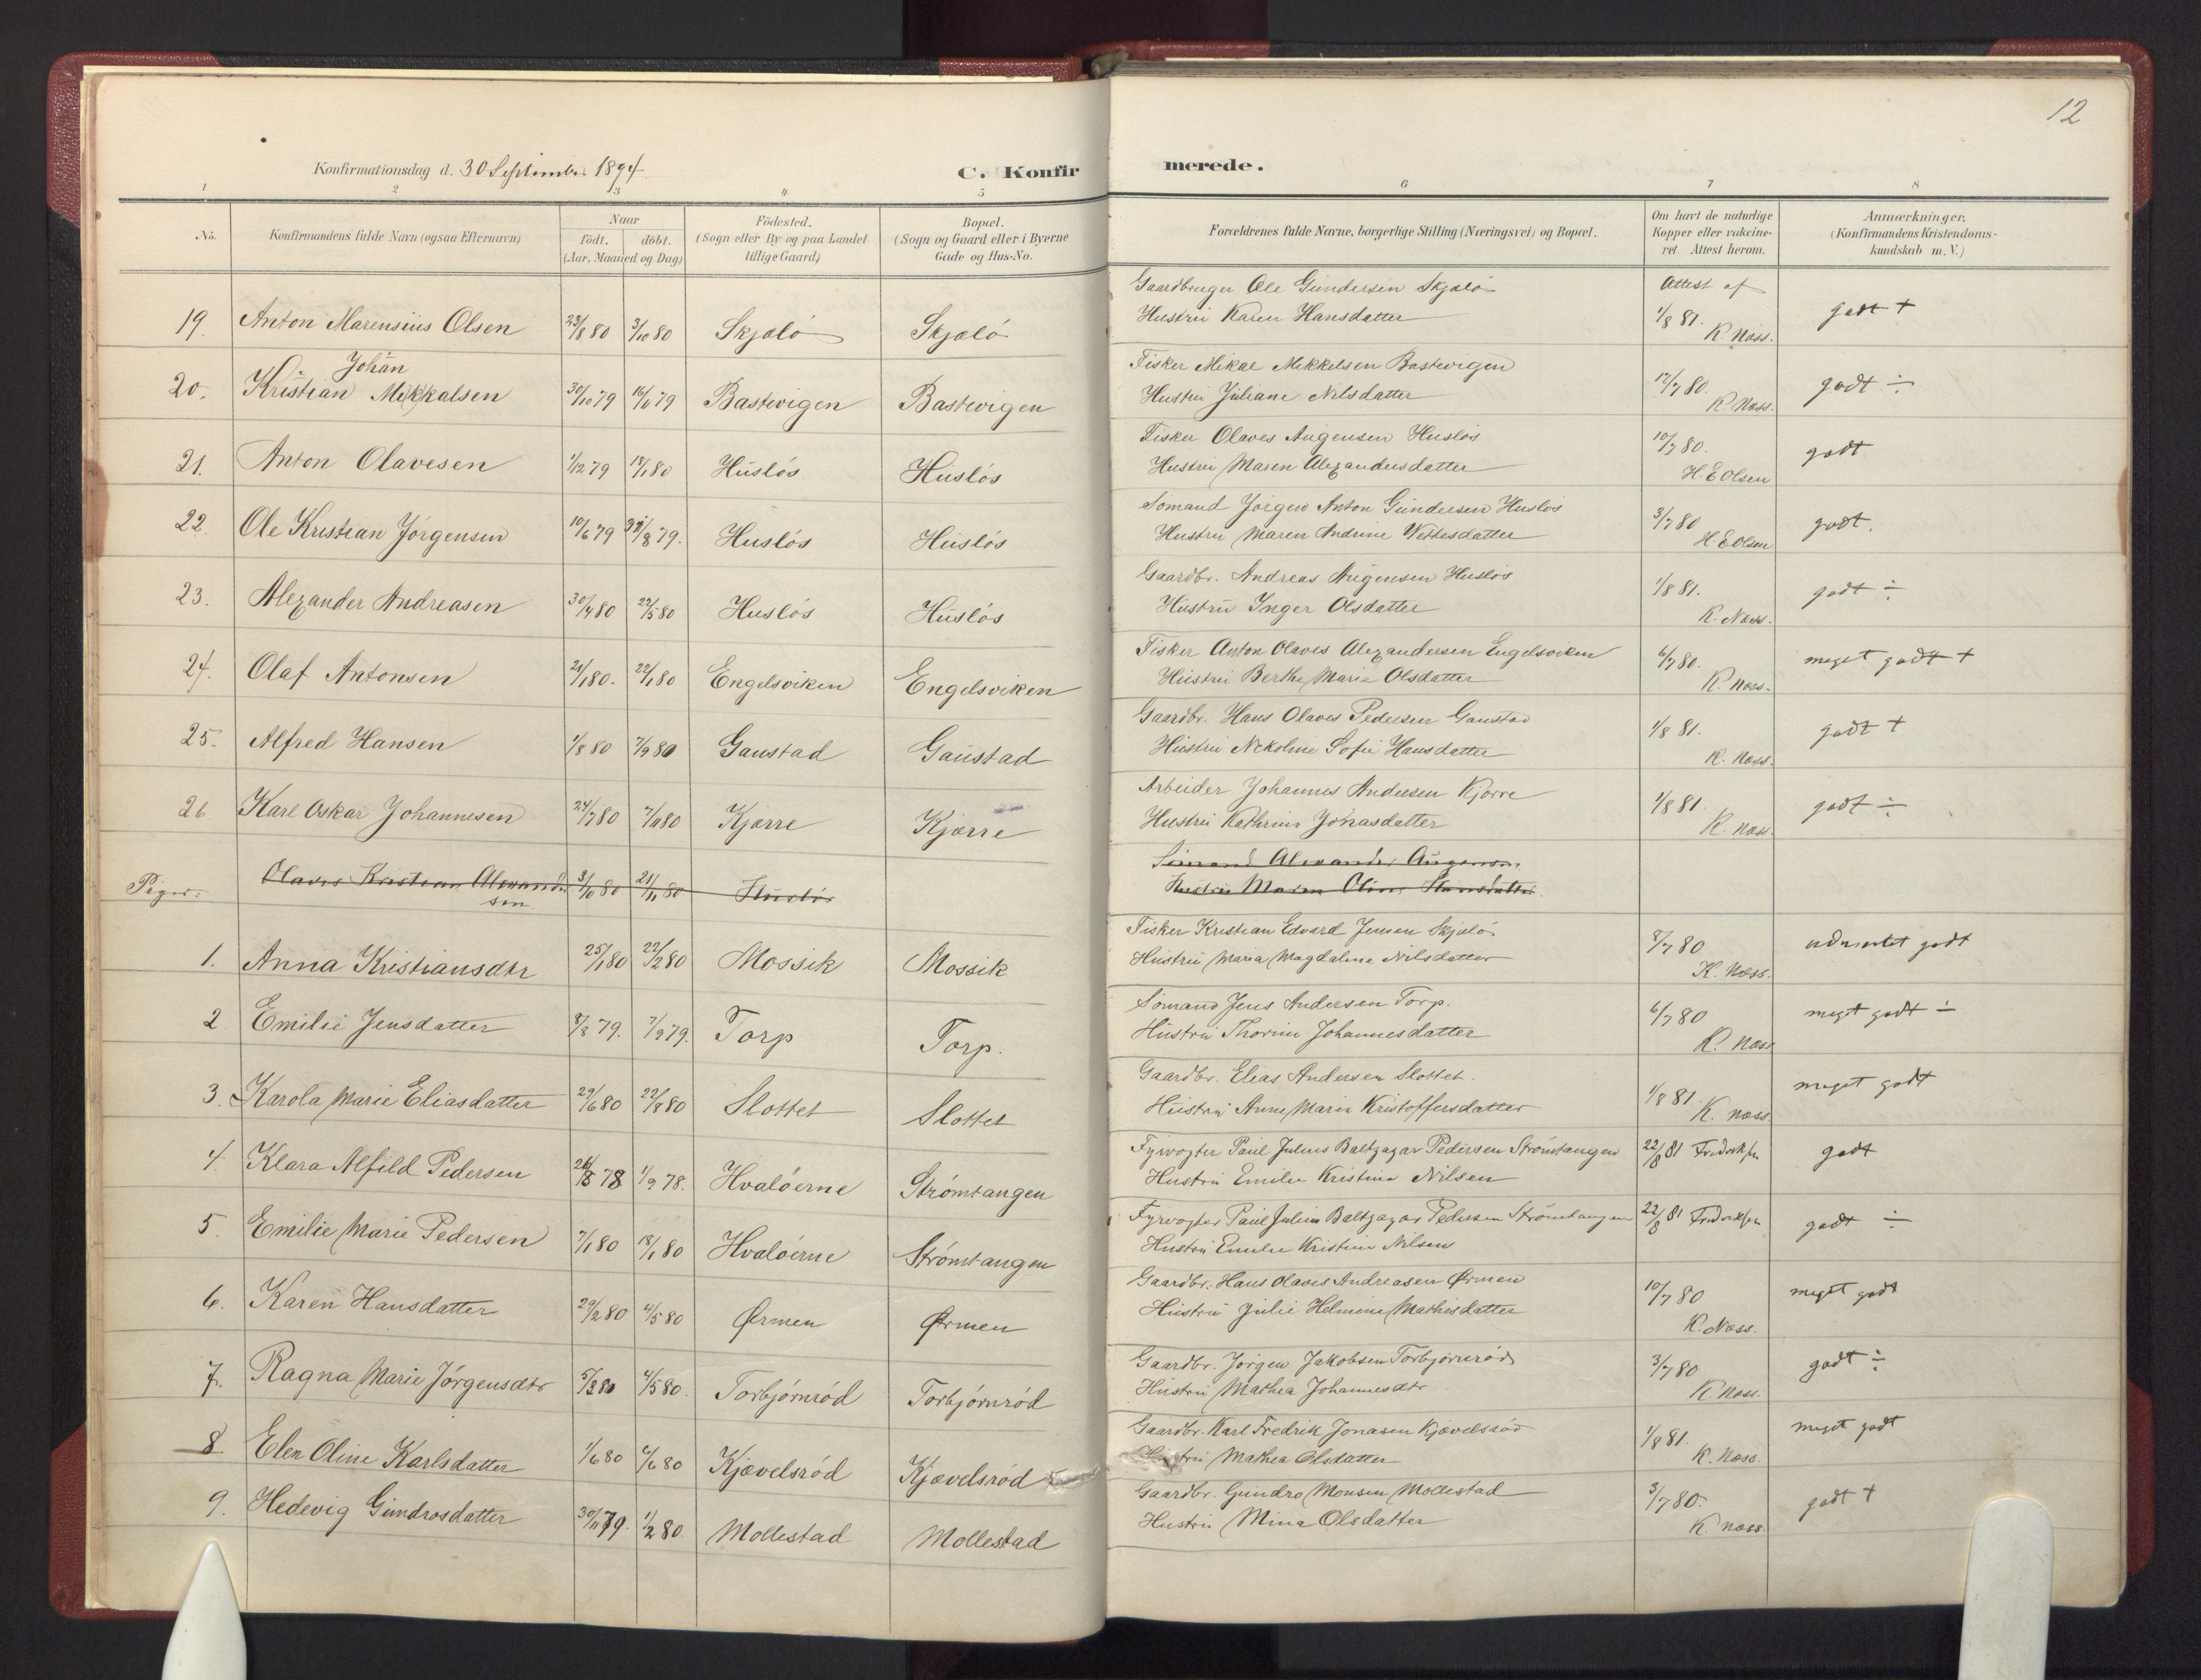 12
Konfirmationsdag d. 30 September 1894.
C. Konfir merede.
1 2 3 4 5 6 7 8
No.
Konfirmandens fulde Navn (ogsaa Efternavn)
Naar
födt. döbt.
(Aar, Maaned og Dag)
Födested.
(Sogn eller By og paa Landet
tillige Gaard)
Bopæl.
(Sogn og Gaard eller i Byerne
Gade og Hus-No.
Forældrenes fulde Navne, borgerlige Stilling (Næringsvei) og Bopæl.
Om havt de naturlige
Kopper eller vakcine-
ret Attest herom.
Anmærkninger.
(Konfirmandens Kristendoms-
kundskab m. V.)
19. Anton Marensius Olsen 23/8 80 3/10 80 Skjælö Skjælö
Gaardbruger Ole Gundersen Skjælö
Hustru Karen Hansdatter
Attest af
1/8 81. K. Næss. godt +
Johan
20. Kristian Mikkalsen 30/10 79 16/11 79 Bastevigen Bastevigen
Fisker Mikal Mekkelsen Bastevigen
Hustru Juliane Nilsdatter
12/7 80. K. Næss. godt ÷
21. Anton Olavesen 1/12 79 18/1 80 Huslös Huslös
Fisker Olaves Augensen Huslös
Hustru Maren Alexandersdatter
10/7 80. H. E Olsen godt
22. Ole Kristian Jörgensen 10/6 79 31/8 79. Huslös Huslös
Sömand Jörgen Anton Gundersen Huslös
Hustru Maren Andrine Wettesdatter
3/7 80 H. E Olsen godt.
23. Alexander Andreasen 30/4 80 22/5 80 Huslös Huslös
Gaardbr. Andreas Augensen Huslös
Hustru Inger Olsdatter
1/8 81. K. Næss. godt ÷
24. Olaf Antonsen 21/1 80. 22/1 80 Engelsviken Engelsviken
Fisker Anton Olaves Alexandersen Engelsviken
Hustru Berthe Marie Olsdatter
6/7 80. K. Næss. meget godt +
25. Alfred Hansen 1/8 80 7/9 80 Gaustad Gaustad
Gaardbr. Hans Olaves Pedersen Gaustad
Hustru Nekoline Sofie Hansdatter
1/8 81. K. Næss. godt +
26 Karl Oskar Johannesen 24/7 80 7/11 80 Kjærre Kjærre
Arbeider Johannes Andersen Kjærre
Hustru Kathrine Jonasdatter
1/8 81. K. Næss. godt ÷
Piger:
Olaves Kristian Alexander
sen 3/10 80 21/11 80 Huslös
Sömand Alexander Augensen
Hustru Maren Oline Hansdatter
1. Anna Kristiansdtr 25/1 80 22/2 80 Mossik Mossik
Fisker Kristian Edvard Jensen Skjælö
Hustru Maria Magdalene Nilsdatter
8/7 80 K. Næss. udmerket godt
2. Emilie Jensdatter 8/8 79. 7/9 79. Torp Torp.
Sömand Jens Andersen Torp.
Hustru Thorine Johannesdatter
6/7 80 K. Næss meget godt ÷
3. Karola Marie Eliasdatter 29/6 80 22/8 80 Slottet Slottet
Gaardbr. Elias Andersen Slottet.
Hustru Anne Maria Kristoffersdatter
1/8 81. K. Næss meget godt
4. Klara Alfild Pedersen 21/8 78 1/9 78. Hvalöerne Strömtangen
Fyrvogter Paul Julius Baltzazar Pedersen Strömtangen
Hustru Emilie Kristine Nilsen
22/8 81 Fredriksen godt
5. Emilie Marie Pedersen 7/1 80 18/1 80 Hvalöerne Strömtangen
Fyrvogter Paul Julius Baltzazar Pedersen Strömtangen
Hustru Emilie Kristine Nilsen
22/8 81 Fredriksen godt ÷
6. Karen Hansdatter 29/2 80 4/5 80 Ørmen Ørmen
Gaardbr. Hans Olaves Andreasen Ørmen
Hustru Julie Helmine Mathisdatter
10/7 80 K. Næss. meget godt
7. Ragna Marie Jörgensdtr 5/3 80 4/5 80. Torbjörnröd Torbjörnröd
Gaardbr. Jörgen Jakobsen Torbjörnröd
Hustru Mathea Johannesdtr
3/7 80 K. Næss. godt ÷
8. Elen Oline Karlsdatter 1/6 80 6/6 80 Kjævelsröd Kjævelsröd
Gaardbr. Karl Fredrik Jonasen Kjævelsröd
Hustru Mathea Olsdatter
1/8 81. K. Næss. meget godt
9. Hedevig Gundrosdatter 30/11 79. 1/2 80. Mollestad Mollestad
Gaardbr. Gundro Monsen Mollestad
Hustru Mina Olsdatter
3/7 80. K Næss. godt +